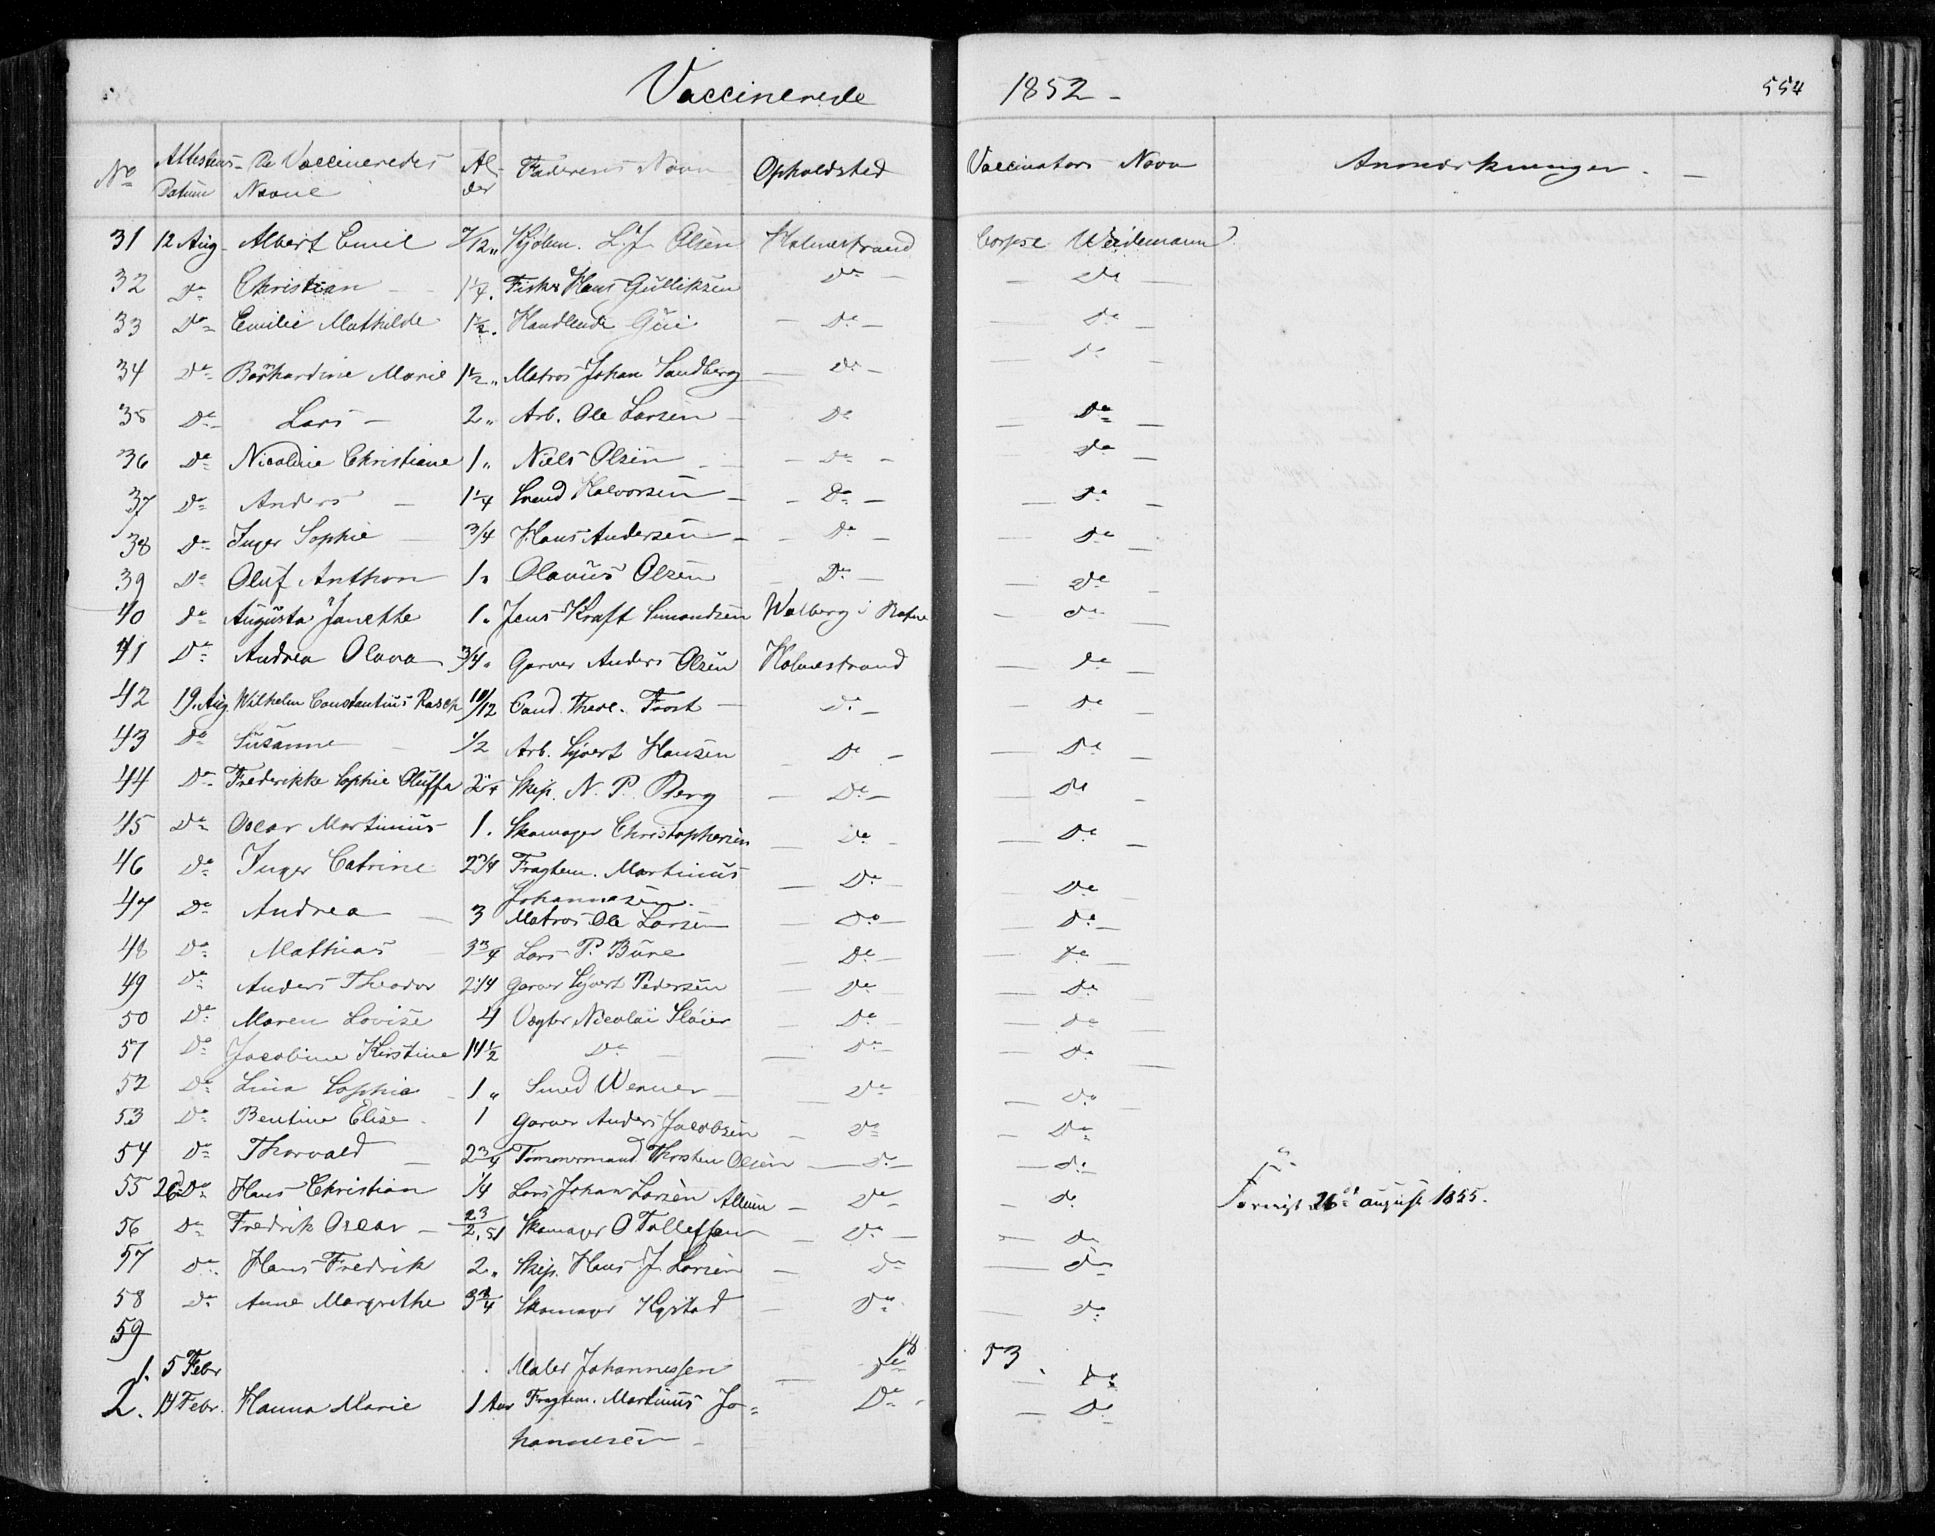 Vaccinerede 1852 - 554
No Attestens Datum De Vaccineredes Navne Al-der Faderens Navn Opholdsted Vaccinators Navn Anmærkninger. -
31 12 Aug. Albert Emil 7/12 Kjøbm. L. J. Olsen Holmestrand Corpsl. Weidemann
32 Do Christian 1 1/4. Fisker Hans Gulliksen Do Do
33 Do Emilie Mathilde 1 1/2. Handlende Gui Do Do
34 Do Marie 1 1/2 Matros Johan Sandberg Do Do
35 Do Lars 2 " Arb. Ole Larsen Do Do
36 Do Nicoline Christiane 1 " Niels Olsen Do Do
37 Do Anders 1 1/4 Svend Halvorsen Do Do
38 Do Inger Sophie 3/4 Hans Andersen Do Do
39 Do Oluf Anthon 1 " Olavus Olsen Do Do
40 Do Augusta Janette 1 " Jens Kraft Simondsen Walberg i Do
41 Do Andrea Olava 3/4 " Garver Anders Olsen Holmestrand Do
42 19. Aug Wilhelm Constantius Rasch 10/12 Cand. Theol. Do Do
43 Do Susanne 1/2 Arb. Syvert Hansen Do Do
44 Do Frederikke Sophie Oluffa 2 1/4 Skip. N. P. Berg Do Do
45 Do Oscar Martinius 1. Skomager Christophersen Do Do
46 Do Inger Catrine 2 3/4 Fragtem. Martinus Do Do
Johannesen.
47 Do Andrea 3 Matros Ole Larsen Do Do
48 Do Mathias 3 3/4 Lars P. Bure Do Do
49 Do Anders Theodor 2 1/4 Garver Syvert Pedersen Do Do
50 Do Maren Lovise 4 Vægter Nicolai Sløier Do Do
51 Do Jacobine Kirstine 14 1/2 Do Do Do
52 Do Lina Sophie 1 " Smed Werner Do Do
53 Do Bentine Elise 1 Garver Anders Jacobsen Do Do
54 Do Thorvald 2 3/4 Tømmermand Thorsten Olsen Do Do
55 26 Do Hans Christian 1/4 Lars Johan Larsen Do Do Fornyt 26de august 1855.
56 Do Fredrik Oscar 23/2. 51 Skomager O Tollefsen Do Do
57 Do Hans Fredrik 2 " Skip. Hans J. Larsen Do Do
58 Do Anne Margrethe 3 3/4 Skomager Do Do
59
18 53
1. 5 Febr Maler Johannessen Do Do
2. 14 Febr. Hanna Marie 1 Aar Fragtem. Martinus Jo- Do Do
hannesen